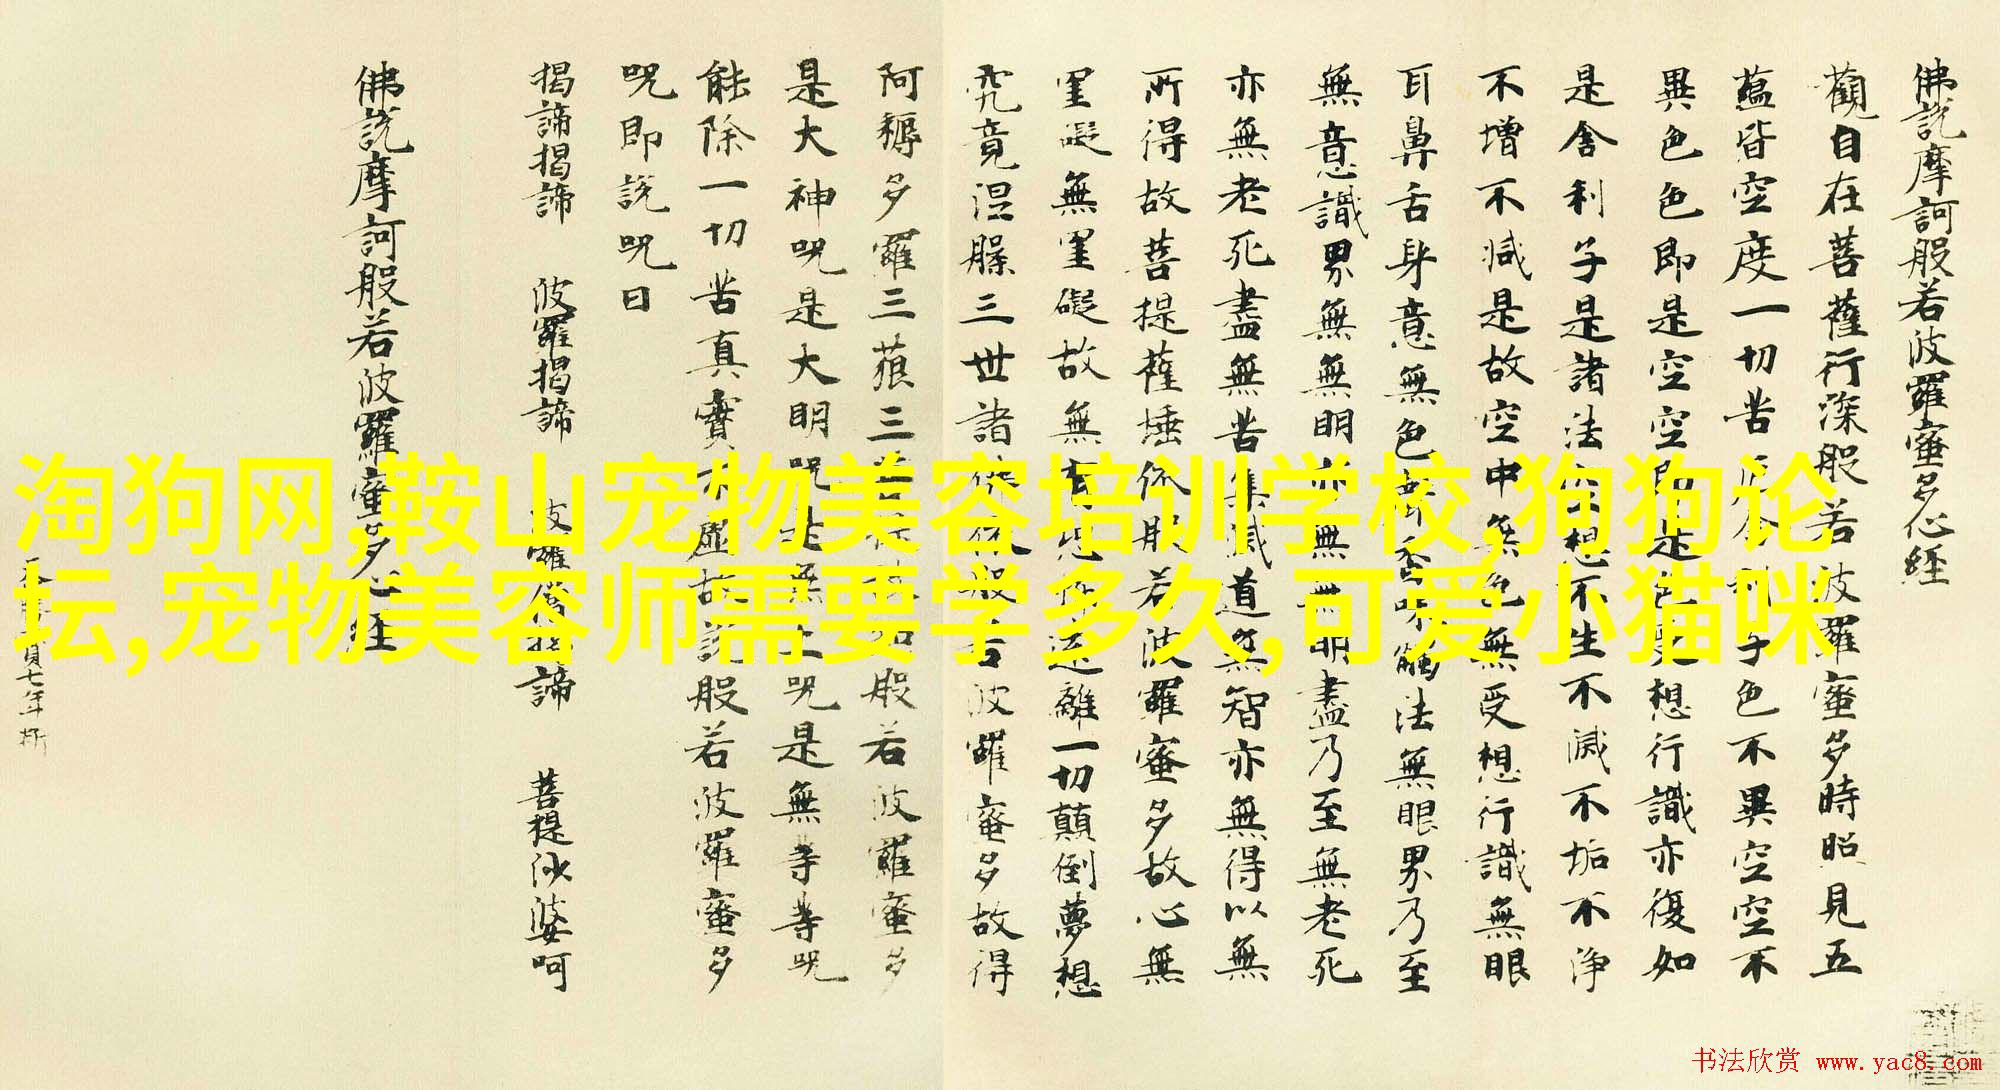 佛說摩訶般若波羅蜜多心經
觀自在菩薩行深般若波羅蜜多時照見五
蘊皆空度一切苦厄舍利子色不異空空不
異色色即是空空即是色受想行識亦復如
是舍利子是諸法空想不生不滅不垢不淨
不增不減是故空中無色無受想行識無眼
耳鼻舌身意無色聲香味觸法無眼界乃至
無意識界無無明亦無無明盡乃至無老死
亦無老死盡無苦集滅道無智亦無得以無
所得故菩提薩埵依般若波羅蜜多故心無
罣礙無罣礙故無有恐怖遠離一切顛倒夢想
究竟涅槃三世諸佛依般若波羅蜜多故得
阿耨多羅三藐三菩提故知般若波羅蜜多
是大神咒是大明咒是無上咒是無等等咒
能除一切苦真實不虛故說般若波羅蜜多
咒即說咒曰
揭諦揭諦 波羅揭諦 波羅僧揭諦 菩提娑婆呵
佛說摩訶般若波羅蜜多心經
淘狗网,鞍山宠物美容培训学校,狗狗论
坛,宠物美容师需要学多久,可爱小猫咪
书法欣赏 www.yac8.com